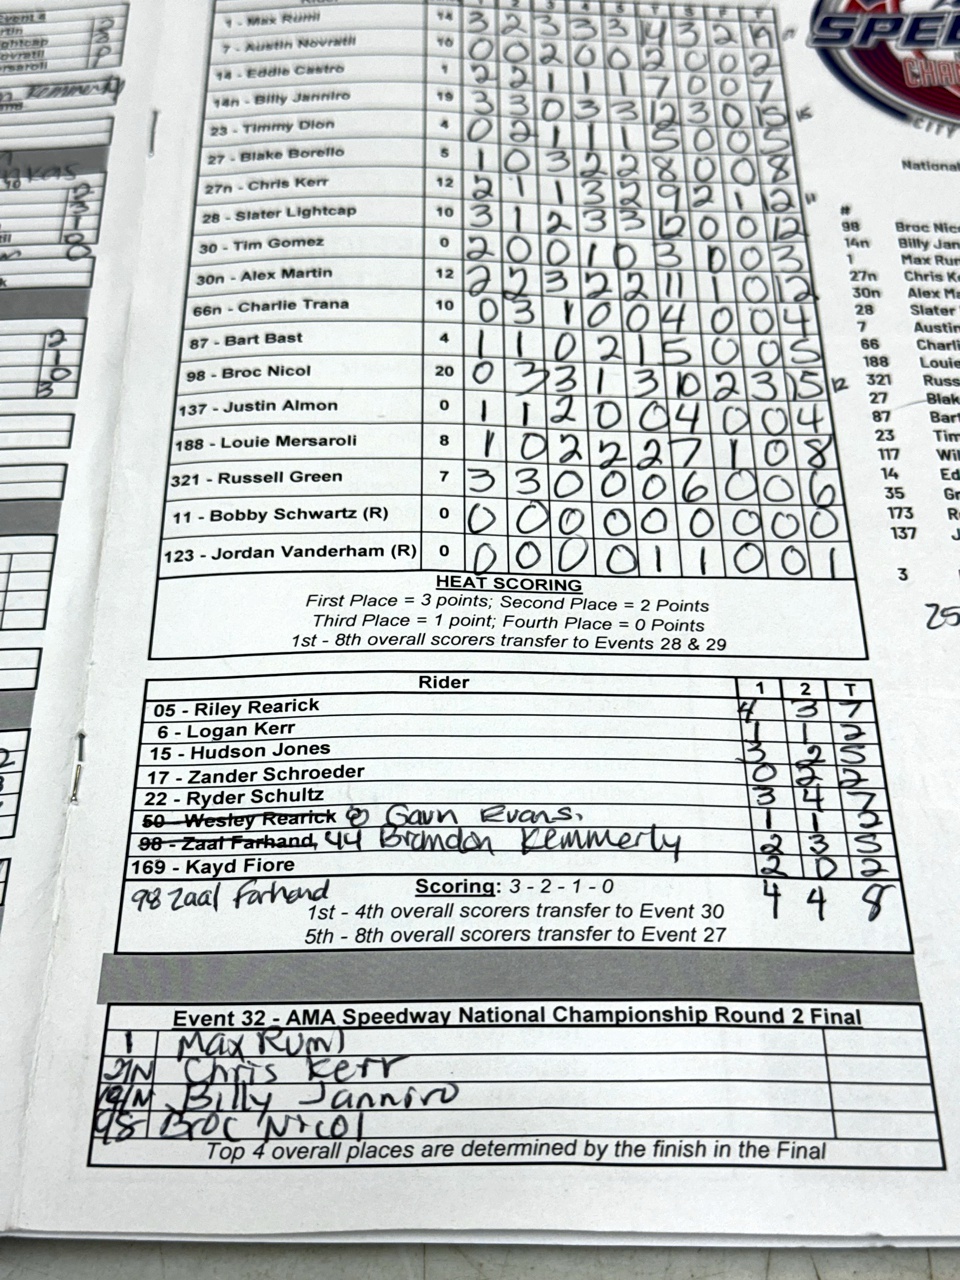 1 - Max Ruml 14 3 2 3 3 3 14 3 2 19
7 - Austin Novratil 10 0 0 2 0 0 2 0 0 2
14 - Eddie Castro 1 2 2 1 1 1 7 0 0 7
14n - Billy Janniro 19 3 3 0 3 3 12 3 0 15 15
23 - Timmy Dion 4 0 2 1 1 1 5 0 0 5
27 - Blake Borello 5 1 0 3 2 2 8 0 0 8
27n - Chris Kerr 12 2 1 1 3 2 9 2 1 12 11
28 - Slater Lightcap 10 3 1 2 3 3 12 0 0 12
30 - Tim Gomez 0 2 0 0 1 0 3 0 0 3
30n - Alex Martin 12 2 2 3 2 2 11 1 0 12
66n - Charlie Trana 10 0 3 1 0 0 4 0 0 4
87 - Bart Bast 4 1 1 0 2 1 5 0 0 5
98 - Broc Nicol 20 0 3 3 1 3 10 2 3 15 12
137 - Justin Almon 0 1 1 2 0 0 4 0 0 4
188 - Louie Mersaroli 8 1 0 2 2 2 7 1 0 8
321 - Russell Green 7 3 3 0 0 0 6 0 0 6
11 - Bobby Schwartz (R) 0 0 0 0 0 0 0 0 0 0
123 - Jordan Vanderham (R) 0 0 0 0 0 1 1 0 0 1
HEAT SCORING
First Place = 3 points; Second Place = 2 Points
Third Place = 1 point; Fourth Place = 0 Points
1st - 8th overall scorers transfer to Events 28 & 29
Rider 1 2 T
05 - Riley Rearick 4 3 7
6 - Logan Kerr 1 1 2
15 - Hudson Jones 3 2 5
17 - Zander Schroeder 0 2 2
22 - Ryder Schultz 3 4 7
50 - Wesley Rearick Gavn Evans. 1 1 2
98 - Zaal Farhand, 44 Brandon Kemmerly 2 3 5
169 - Kayd Fiore 2 0 2
98 Zaal Farhand 4 4 8
Scoring: 3 - 2 - 1 - 0
1st - 4th overall scorers transfer to Event 30
5th - 8th overall scorers transfer to Event 27
Event 32 - AMA Speedway National Championship Round 2 Final
1 Max Ruml
27N Chris Kerr
14N Billy Janniro
98 Broc Nicol
Top 4 overall places are determined by the finish in the Final
SPEE
CHAN
CITY
National
#
98 Broc Nic
14n Billy Jan
1 Max Rum
27n Chris K
30n Alex M
28 Slater
7 Austin
66 Charli
188 Louie
321 Russ
27 Blak
87 Bart
23 Tim
117 Wil
14 Ed
35 Gr
173 R
137 J
3
25